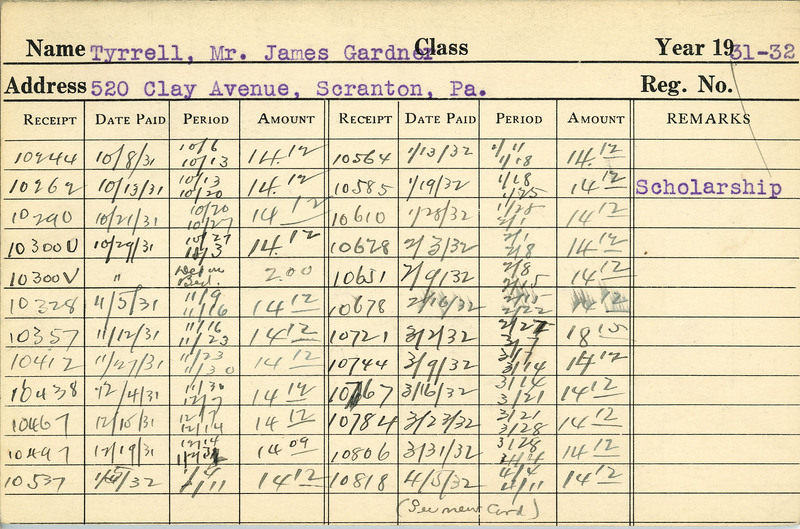 Name Tyrrell, Mr. James Gardner Class Year 1931-32
Address 520 Clay Avenue, Scranton, Pa. Reg. No.
RECEIPT DATE PAID PERIOD AMOUNT RECEIPT DATE PAID PERIOD AMOUNT REMARKS
10244 10/8/31 10/6 10/13 14.12 10564 1/13/32 1/11 1/18 14.12
10262 10/13/31 10/13 10/20 14.12 10585 1/19/32 1/18 1/25 14 12 Scholarship
10290 10/21/31 10/20 10/27 14 12 10610 1/28/32 1/25 2/1 14 12
10300U 10/29/31 10/27 11/3 14.12 10628 2/3/32 2/1 2/8 14 12
10300V " Bed. 2.00 10651 2/9/32 2/8 2/15 14 12
10328 11/5/31 11/9 11/16 14 12 10678 2/16/32 2/15 2/22 14 12
10357 11/12/31 11/16 11/23 14 12 10721 3/2/32 2/27 3/7 18 15
10412 11/27/31 11/23 11/30 14 12 10744 3/9/32 3/7 3/14 14 12
10438 12/4/31 11/30 12/7 14 12 10767 3/16/32 3/14 3/21 14 12
10467 12/10/31 12/7 12/14 14 12 10784 3/23/32 3/21 3/28 14 12
10497 12/19/31 12/14 14 09 10806 3/31/32 3/28 4/4 14 12
10537 1/5/32 1/4 1/11 14 12 10818 4/5/32 4/4 4/11 14 12
(See new Card)